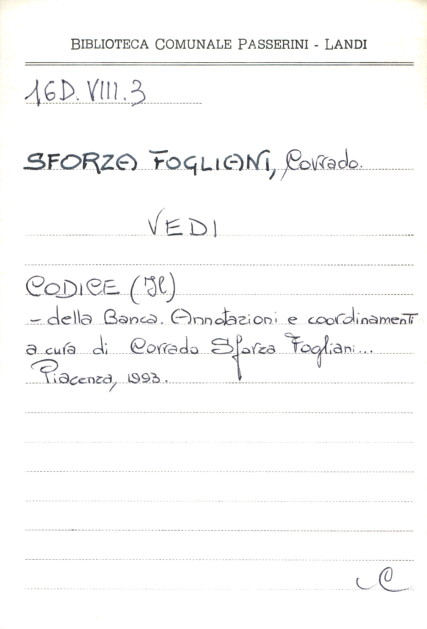 BIBLIOTECA COMUNALE PASSERINI - LANDI
16D.VIII.3
SFORZA FOGLIANI, Corrado.
VEDI
CODICE (Il)
- della Banca. Annotazioni e coordinamenti
a cura di Corrado Sforza Fogliani...
Piacenza, 1993.